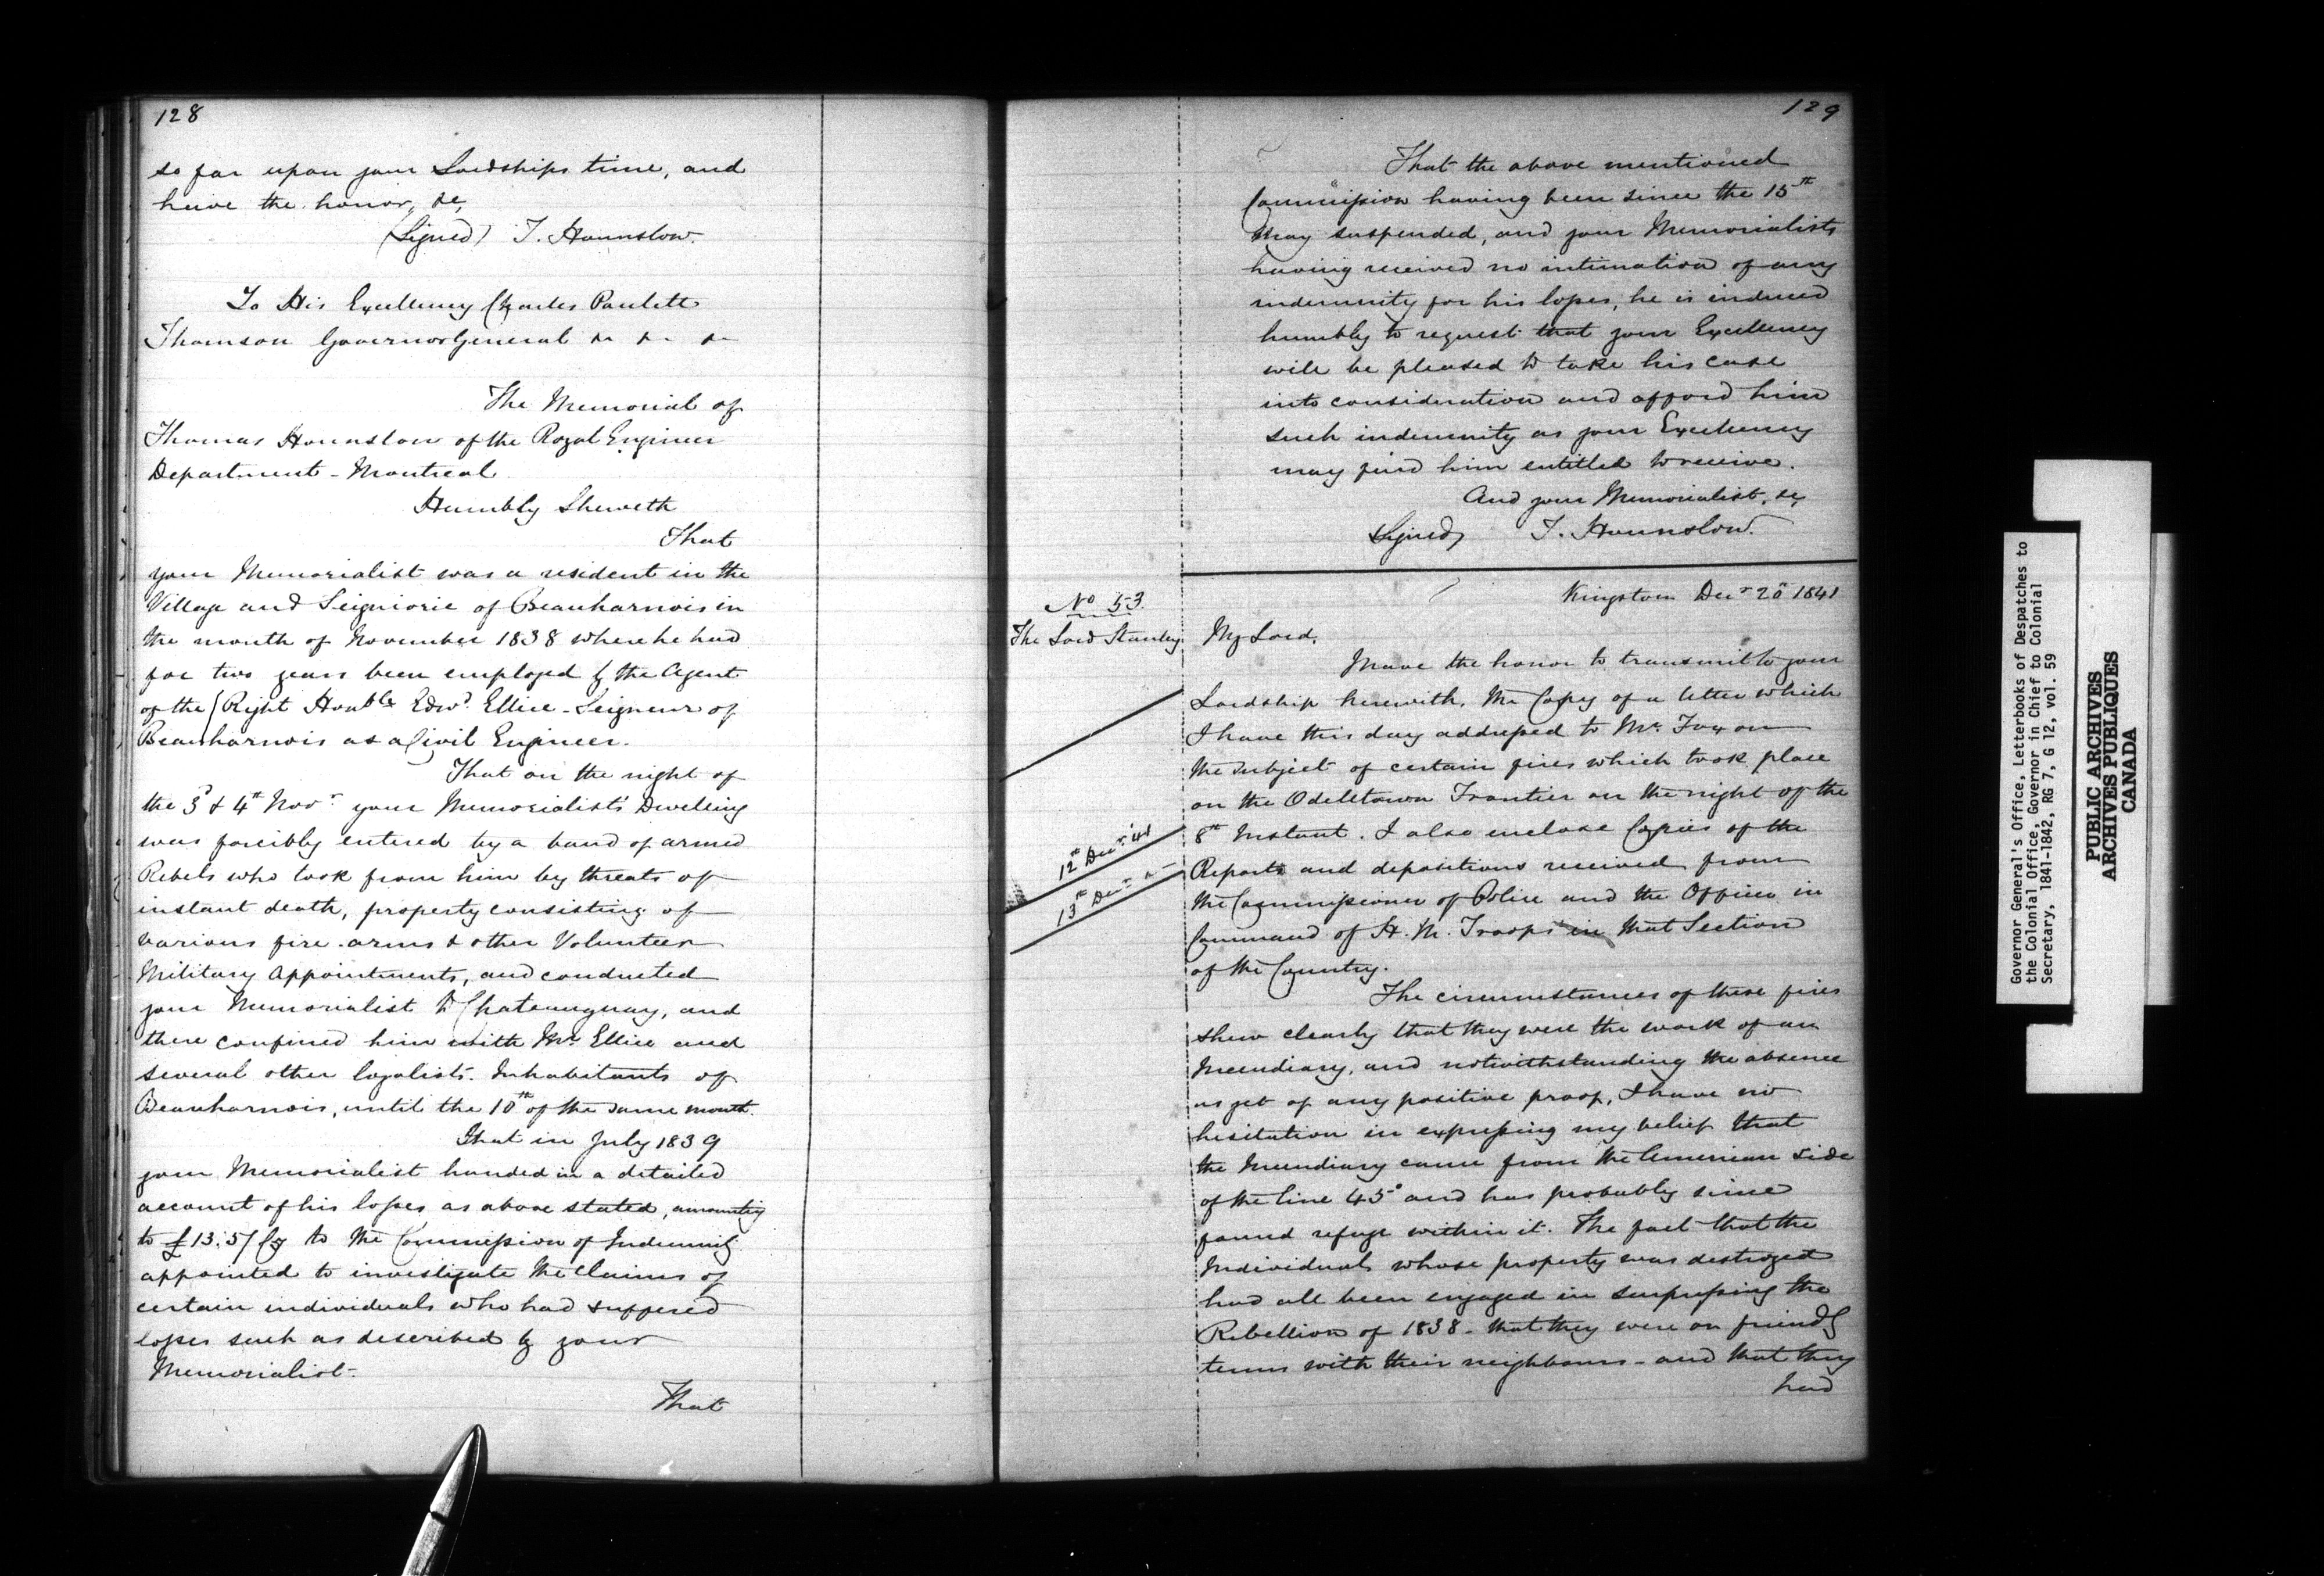 128
so far upon your Lordships time, and
have the honor, &c,
(Signed) T. Hounslow.
To His Excellency Charles Poulett
Thomson Governor General &c &c &c
The Memorial of
Thomas Hounslow of the Royal Engineer
Department - Montreal
Humbly Sheweth
That
your Memorialist was a resident in the
Village and Seigniorie of Beauharnois in
the month of November 1838 where he had
for two years been employed by the Agent
of the (Right Honble Edwd. Ellice - Seigneur of
Beauharnois as a Civil Engineer.
That on the night of
the 3d & 4th Novr. your Memorialists' Dwelling
was forcibly entered by a band of armed
Rebels who took from him by threats of
instant death, property consisting of
various fire-arms & other Volunteer
Military Appointments, and conducted
your Memorialist to Chateauguay, and
there confined him with Mr. Ellice and
several other loyalists. Inhabitants of
Beauharnois, until the 10th of the same month.
That in July 1839
your Memorialist handed in a detailed
account of his losses as above stated, amounting
to £13.5/Cy to the Commission of Indemnity
appointed to investigate the Claims of
certain individuals who had suffered
losses such as described by your
Memorialist.
That
129
That the above mentioned
Commission having been since the 15th
May suspended, and your Memorialists
having received no intimation of any
indemnity for his losses, he is induced
humbly to request that your Excellency
will be pleased to take his case
into consideration and afford him
such indemnity as your Excellency
may find him entitled to receive.
And your Memorialist, &c,
Signed, T. Hounslow.
Kingston Decr 20th 1841
No 53.
The Lord Stanley.
My Lord,
I have the honor to transmit to your
Lordship herewith, the Copy of a letter which
I have this day addressed to Mr. Fox on
the subject of certain fires which took place
on the Odelltown Frontier on the night of the
8th Instant. I also enclose Copies of the
12th Decr. '41
Reports and depositions received from
13th Decr. "
the Commissioner of Police and the Officer in
Command of H. M. Troops in that Section
of the Country.
The circumstances of these fires
shew clearly that they were the work of an
Incendiary, and notwithstanding the absence
as yet of any positive proof, I have no
hesitation in expressing my belief that
the Incendiary came from the American side
of the line 45° and has probably since
found refuge within it. The fact that the
Individuals whose property was destroyed
had all been engaged in suppressing the
Rebellion of 1838 - that they were on friendly
terms with their neighbours - and that they
had
Governor General's Office, Letterbooks of Despatches to
the Colonial Office, Governor in Chief to Colonial
Secretary, 1841-1842, RG 7, G 12, vol. 59
PUBLIC ARCHIVES
ARCHIVES PUBLIQUES
CANADA